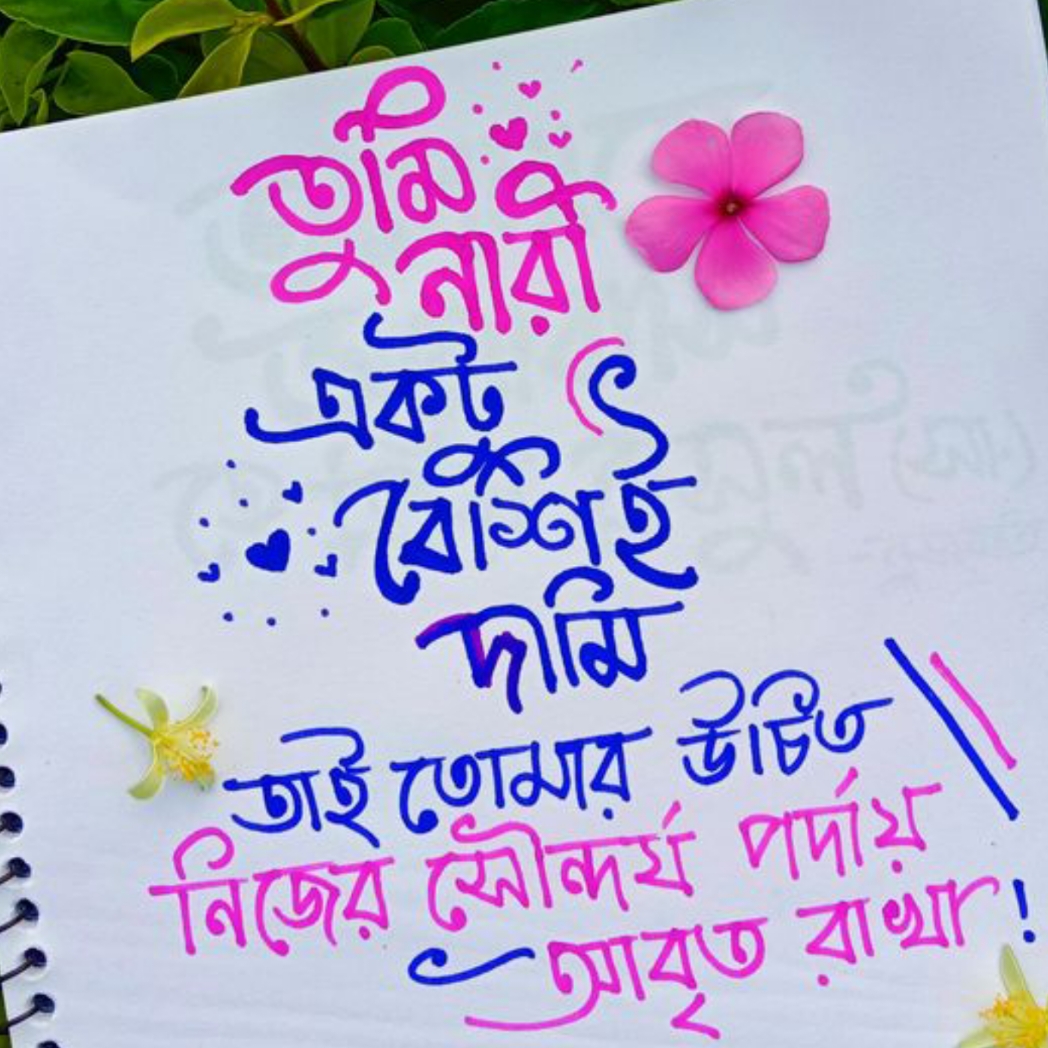 তুমি
নারী
একটু
বেশিই
দামি
তাই তোমার উচিত
নিজের সৌন্দর্য পর্দায়
আবৃত রাখা!